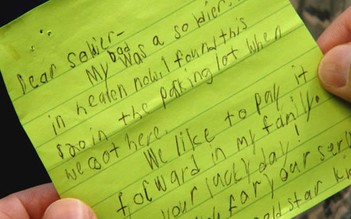 Dear Soldier-
My Dad was a soldier.
in heaven now. I found this
$20 in the parking lot when
we got here.
We like to pay it
forward in my family.
your lucky day!
for your serv
old star ki